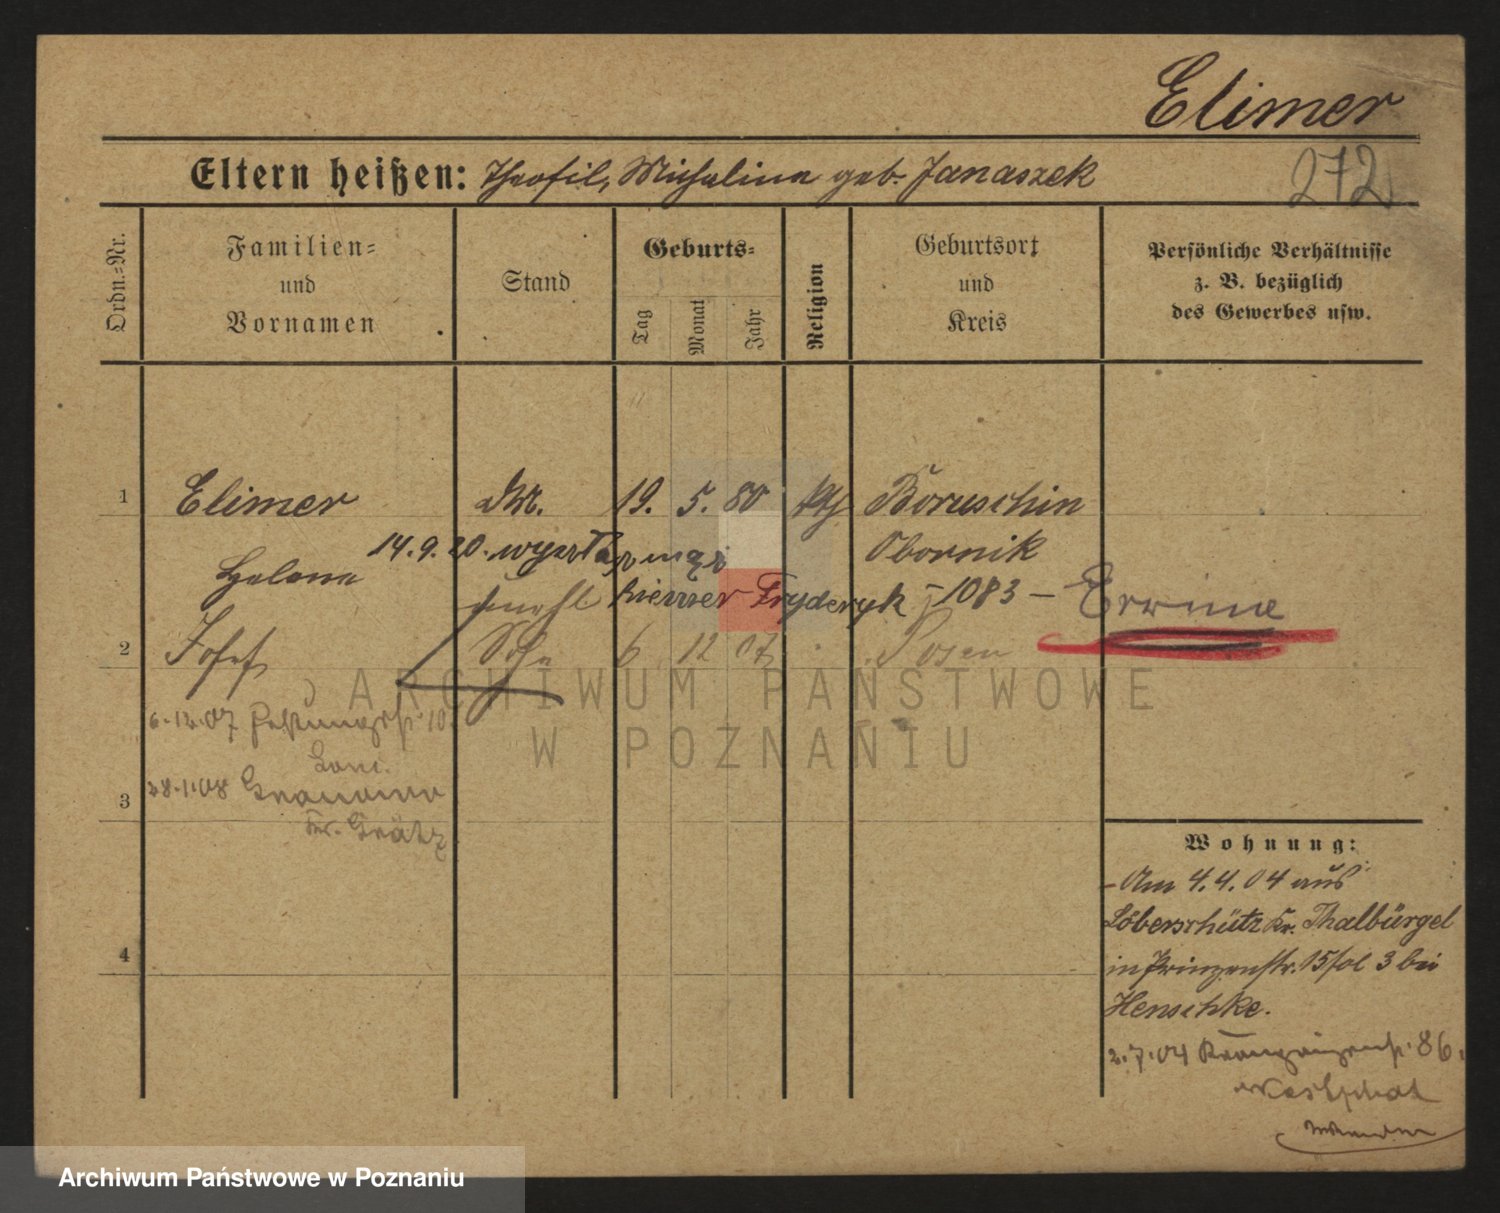 Elimer
Eltern heißen: Theofil, Michalina geb. Janaszek
272
Ordn.=Nr.
Familien=
und
Vornamen
Stand
Geburts=
Tag
Monat
Jahr
Religion
Geburtsort
und
Kreis
Persönliche Verhältnisse
z. B. bezüglich
des Gewerbes usw.
1 Elimer 19. 5. 80 kth Boruschin
Obornik
Helena
14.9.20.
Fryderyk - 1083 -
2 Josef Sohn 6 12 07 Posen
6.12.07
28.1.08
Kr. Grätz
3
4
Wohnung:
Am 4.4.04 aus
Löberschütz Kr. Thalbürgel
in Prinzenstr. 15 bei
Henschke.
2.7.04 Kronprinzenstr. 86.
Westphal
ARCHIWUM PAŃSTWOWE
W POZNANIU
Archiwum Państwowe w Poznaniu